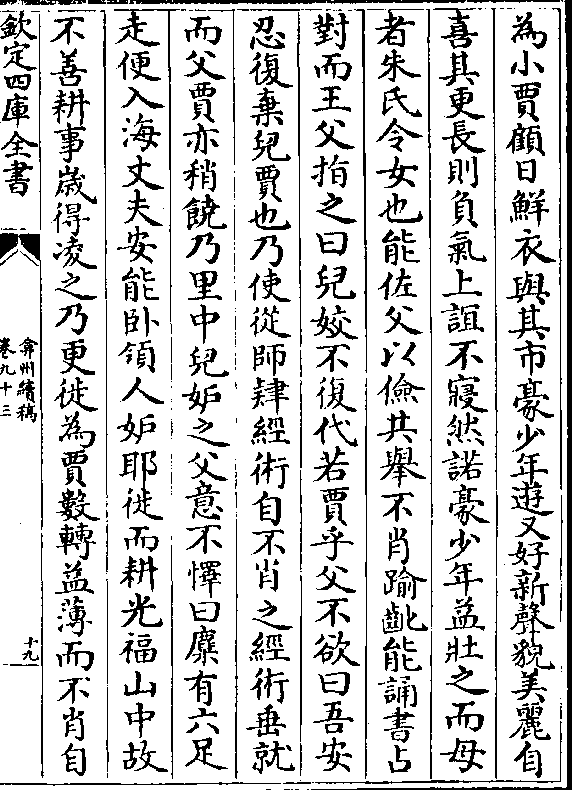 為小賈顧日鮮衣與其市豪少年遊又好新聲貌美麗自
喜其更長則負氣上誼不寢然諾豪少年益壯之而母
者朱氏令女也能佐父以儉共舉不肖踰齔能誦書占
對而王父指之曰兒姣不復代若賈乎父不欲曰吾安
忍復棄兒賈也乃使從師肄經術自不肖之經術垂就
而父賈亦稍饒乃里中兒妒之父意不懌曰麋有六足
走便入海丈夫安能卧領人妒耶徙而耕光福山中故
不善耕事歲得凌之乃更徙為賈數轉益薄而不肖自
欽定四庫全書
弇州續稿
卷九十三
十九